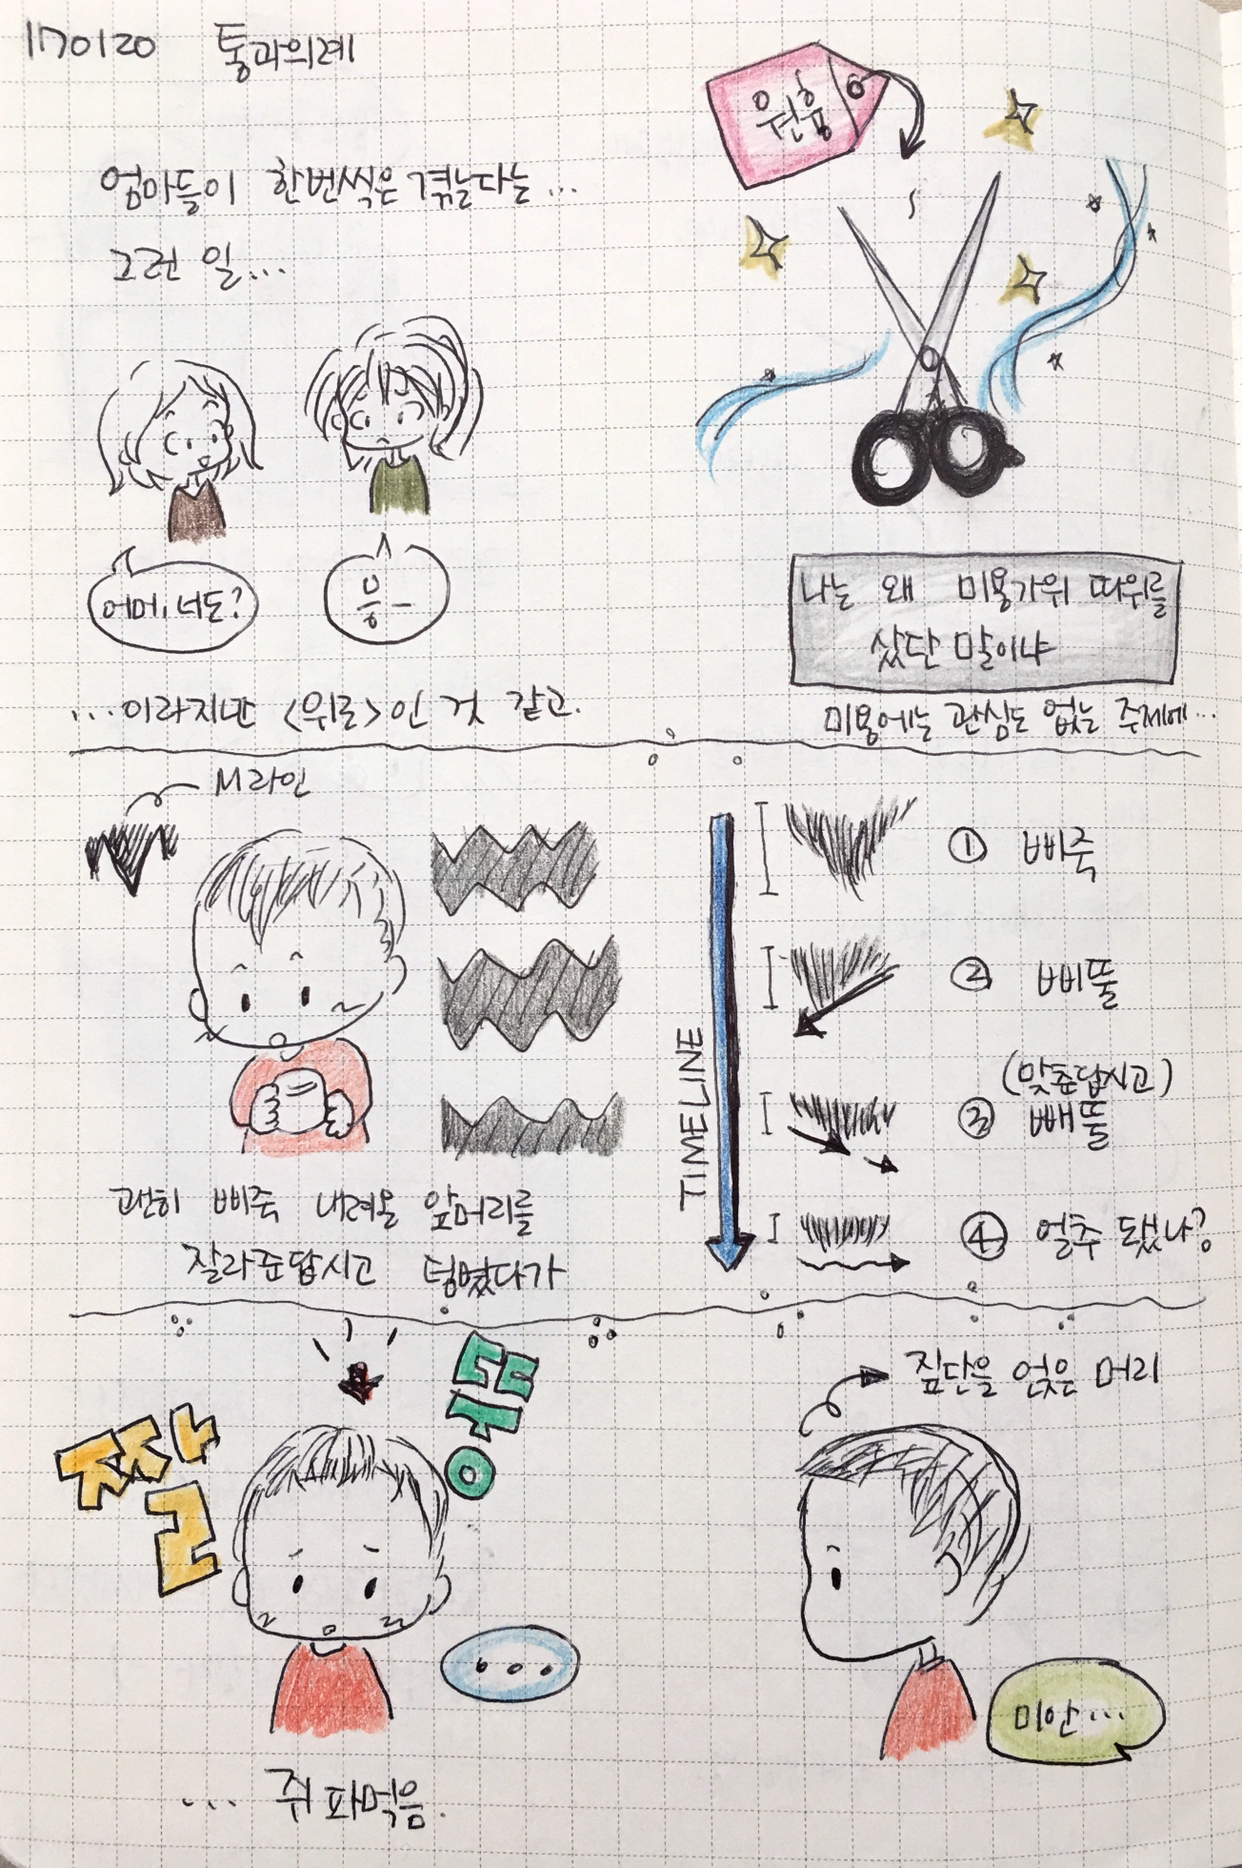 170120 통과의례
엄마들이 한번씩은 겪는다는...
그런 일...
어머, 너도?
응-
...이라지만 <위로>인 것 같고.
원흉
나는 왜 미용가위 따위를
샀단 말이냐
미용에는 관심도 없는 주제에...
M라인
괜히 삐죽 내려온 앞머리를
잘라준답시고 덤볐다가
TIMELINE
① 삐죽
② 삐뚤
(맞춘답시고)
③ 빼뚤
④ 얼추 됐나?
짜
근
땅
...
... 쥐 파먹음.
짚단을 얹은 머리
미안...